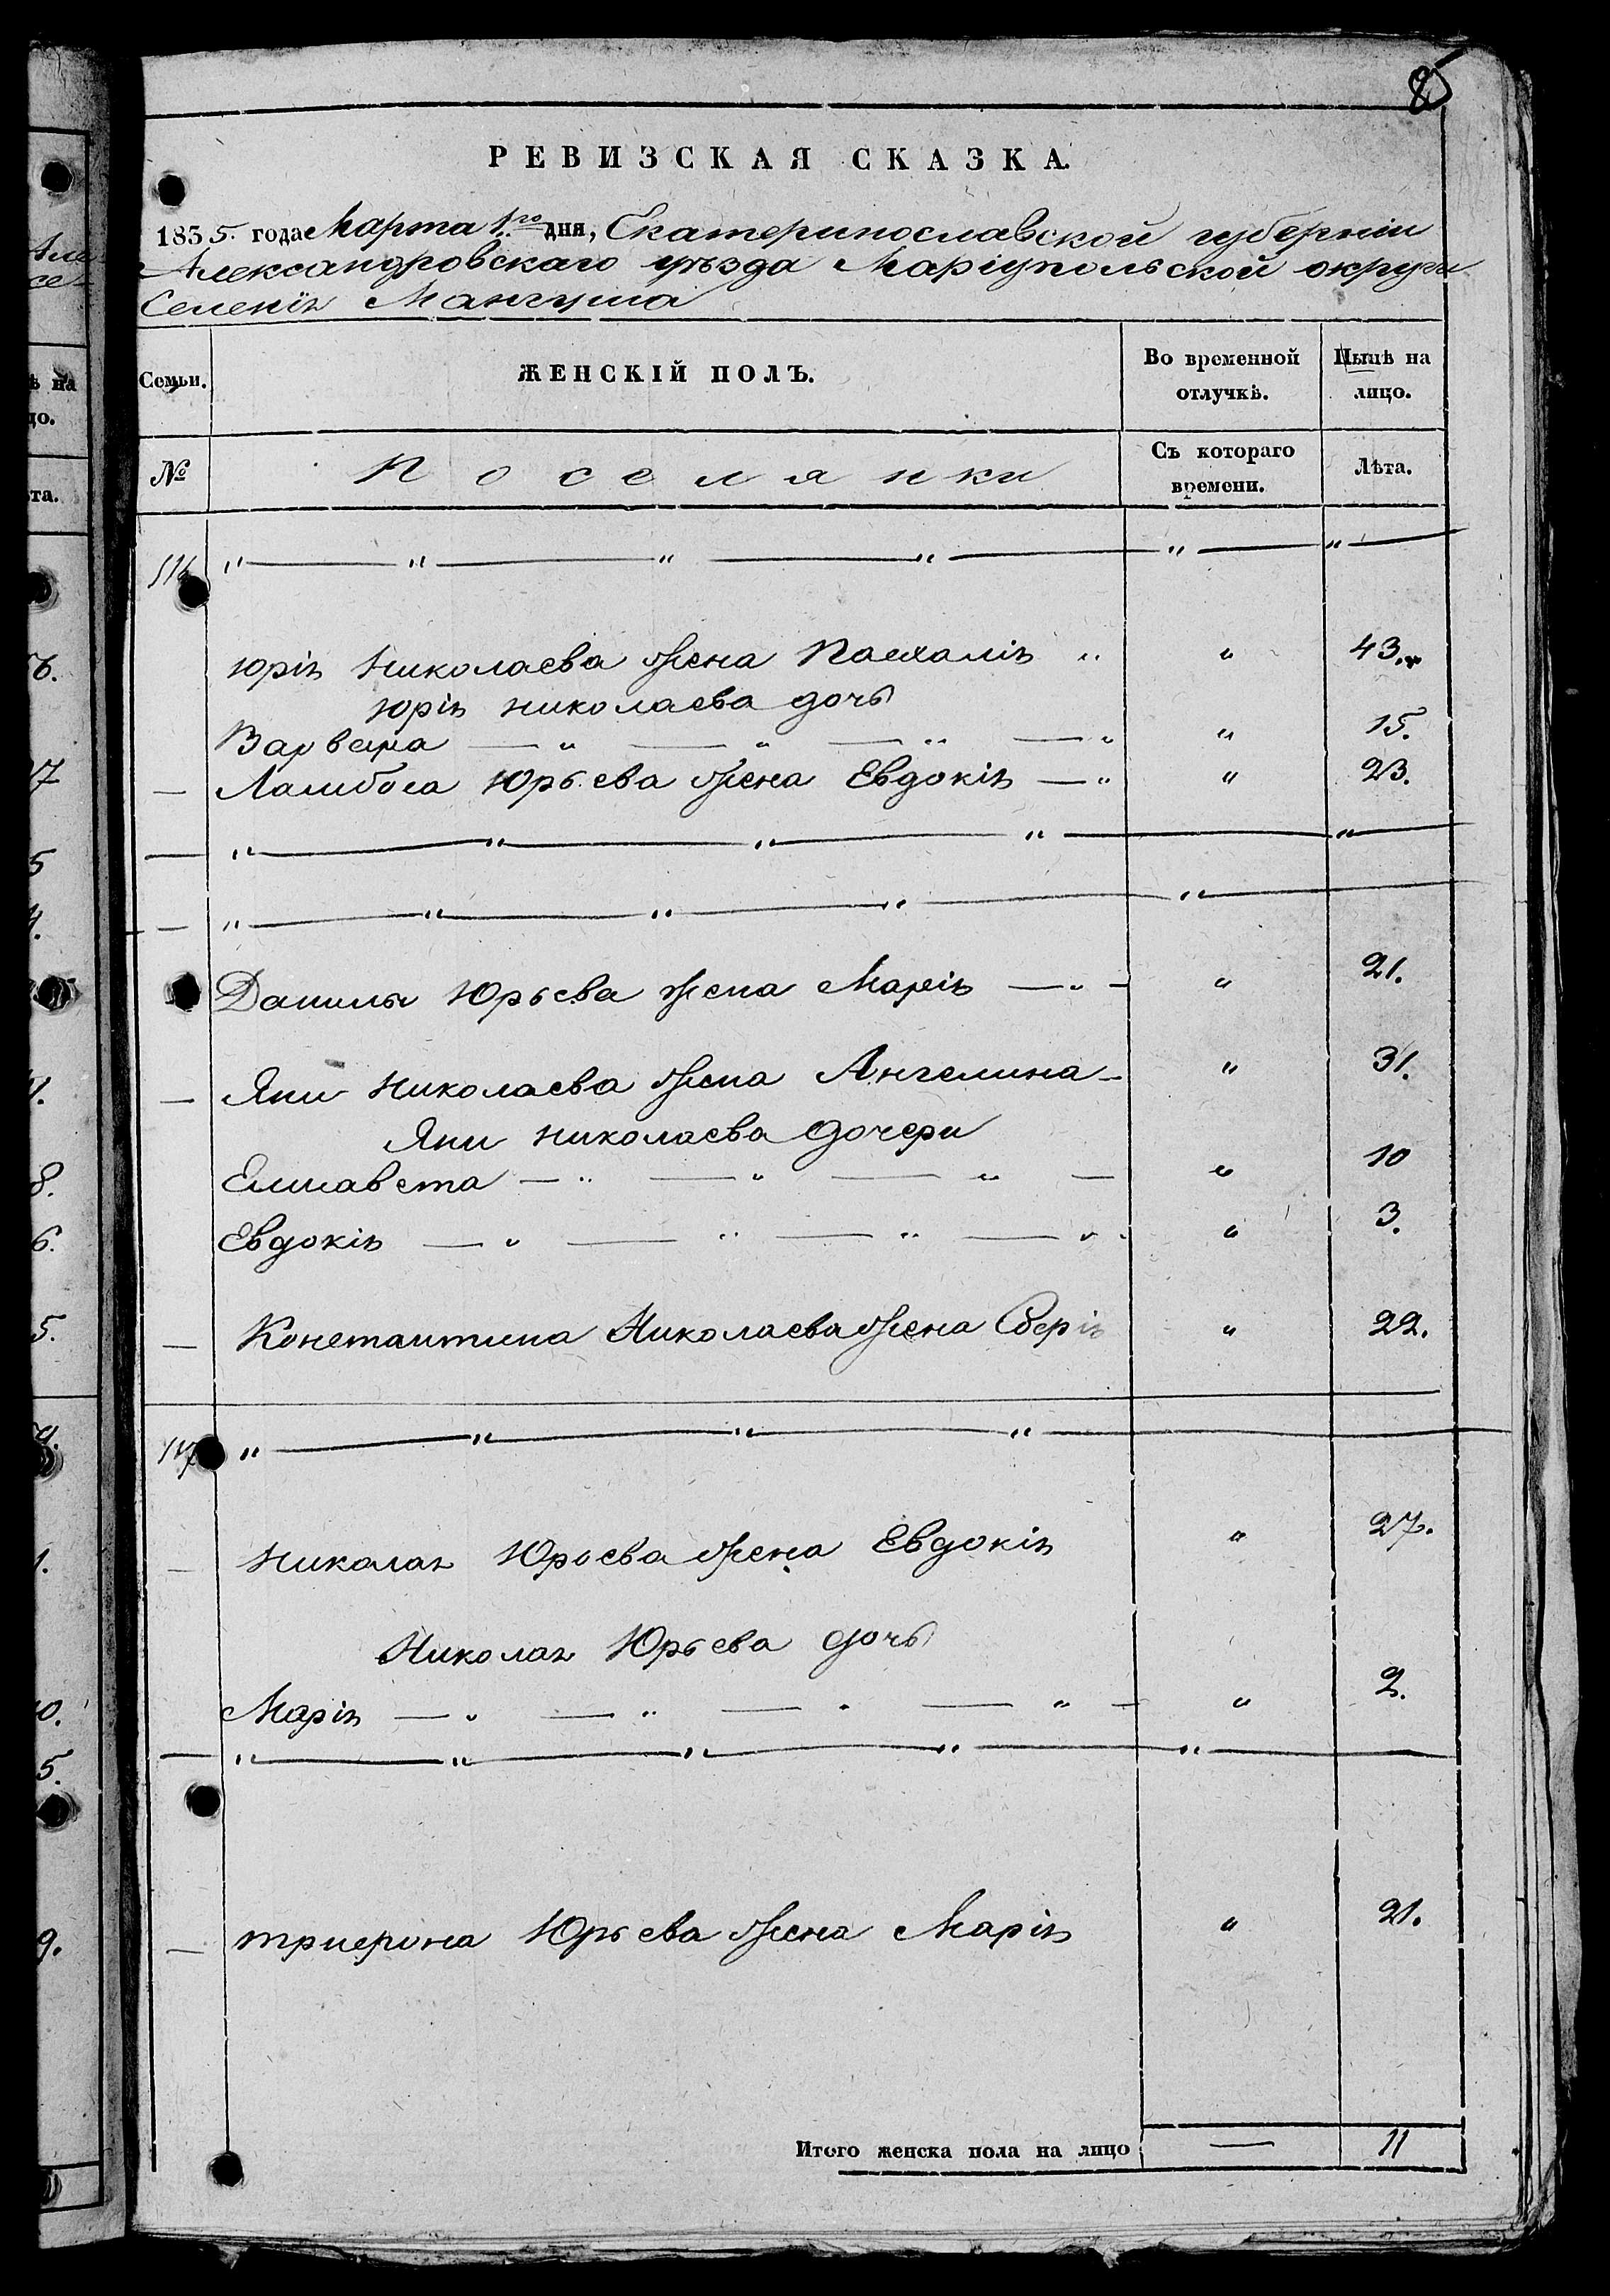 85
РЕВИЗСКАЯ СКАЗКА.
1835. года Марта 1го дня, Екатеринославской губернiи
Александровскаго уѣзда Марiупольской округи
Селенiя Мангуша
Семьи. ЖЕНСКIЙ ПОЛЪ. Во временной отлучкѣ. Нынѣ на лицо.
№ Поселянки Съ котораго времени. Лѣта.
116 " " " " " "
Юрiя Николаева жена Пасхалiя " " 43.
Юрiя Николаева дочь
Варвара — " — " — " — " " 15.
— Юрьева жена Евдокiя — " " 23.
— " " " " "
— " " " " "
Данилы Юрьева жена Марiя — " — " 21.
— Яни Николаева жена Ангелина — " 31.
Яни Николаева дочери
Елисавета — " — " — " — " 10
Евдокiя — " — " — " — " " 3.
— Константина Николаева жена " 22.
117 " " " "
— Николая Юрьева жена Евдокiя " 27.
Николая Юрьева дочь
Марiя — " — " — " — " — " 2.
— " " " " "
— Юрьева жена Марiя " 21.
Итого женска пола на лицо — 11